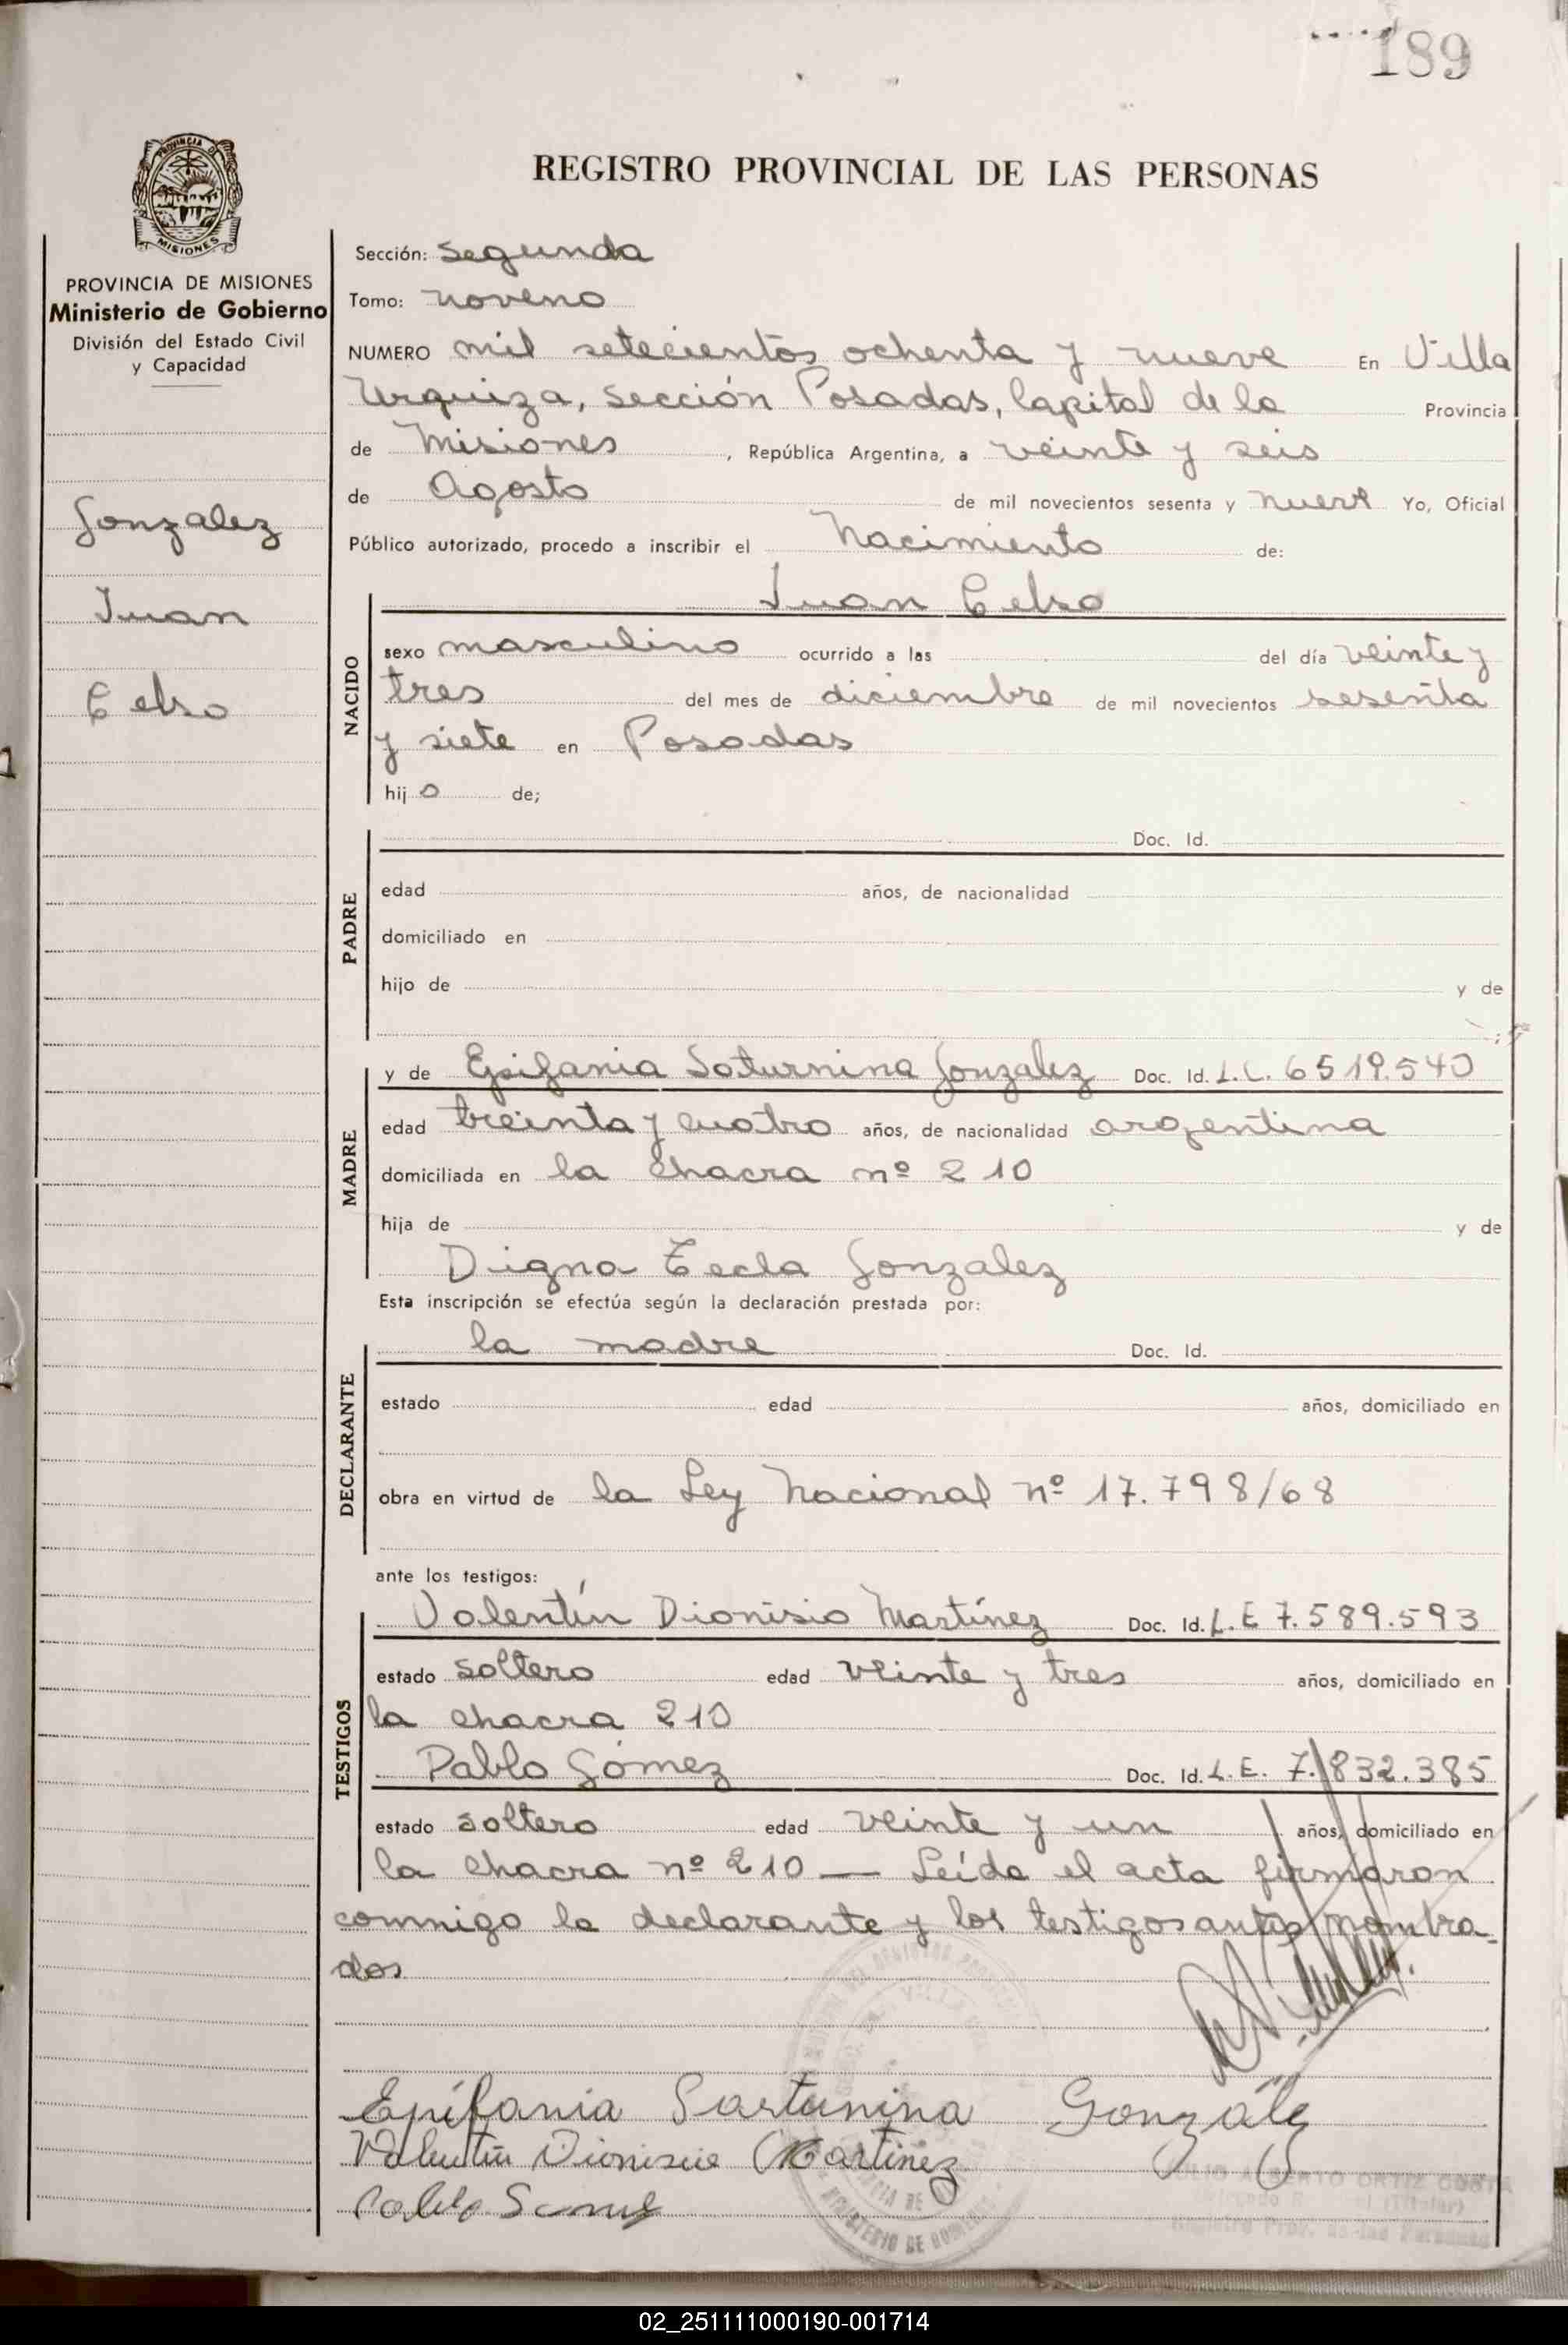 189
PROVINCIA DE MISIONES
REGISTRO PROVINCIAL DE LAS PERSONAS
PROVINCIA DE MISIONES
Ministerio de Gobierno
División del Estado Civil
y Capacidad
Gonzalez
Juan
Celso
Sección: Segunda
Tomo: noveno
NUMERO mil setecientos ochenta y nueve En Villa
Urquiza, sección Posadas, Capital de la Provincia
de Misiones, República Argentina, a veinte y seis
de Agosto de mil novecientos sesenta y nueve Yo, Oficial
Público autorizado, procedo a inscribir el Nacimiento de:
Juan Celso
NACIDO
sexo masculino ocurrido a las del día veinte y
tres del mes de diciembre de mil novecientos sesenta
y siete en Posadas
hijo de;
PADRE
Doc. Id.
edad años, de nacionalidad
domiciliado en
hijo de y de
MADRE
y de Epifania Saturnina Gonzalez Doc. Id. L.C. 6519.540
edad treinta y cuatro años, de nacionalidad argentina
domiciliada en la chacra nº 210
hija de y de
Digna Tecla Gonzalez
Esta inscripción se efectúa según la declaración prestada por:
DECLARANTE
la madre Doc. Id.
estado edad años, domiciliado en
obra en virtud de la Ley Nacional nº 17.798/68
ante los testigos:
TESTIGOS
Valentín Dionisio Martínez Doc. Id. L.E 7.589.593
estado soltero edad veinte y tres años, domiciliado en
la chacra 210
Pablo Gómez Doc. Id. L.E. 7.832.385
estado soltero edad veinte y un años, domiciliado en
la chacra nº 210 — Leída el acta firmaron
conmigo la declarante y los testigos antes nombra-
dos
Epífania Sartunina Gonzále
Valentin Dionisio Martinez
Pablo
ALBERTO ORTIZ COSTA
(Titular)
Registro Prov. de las Personas
02_251111000190-001714